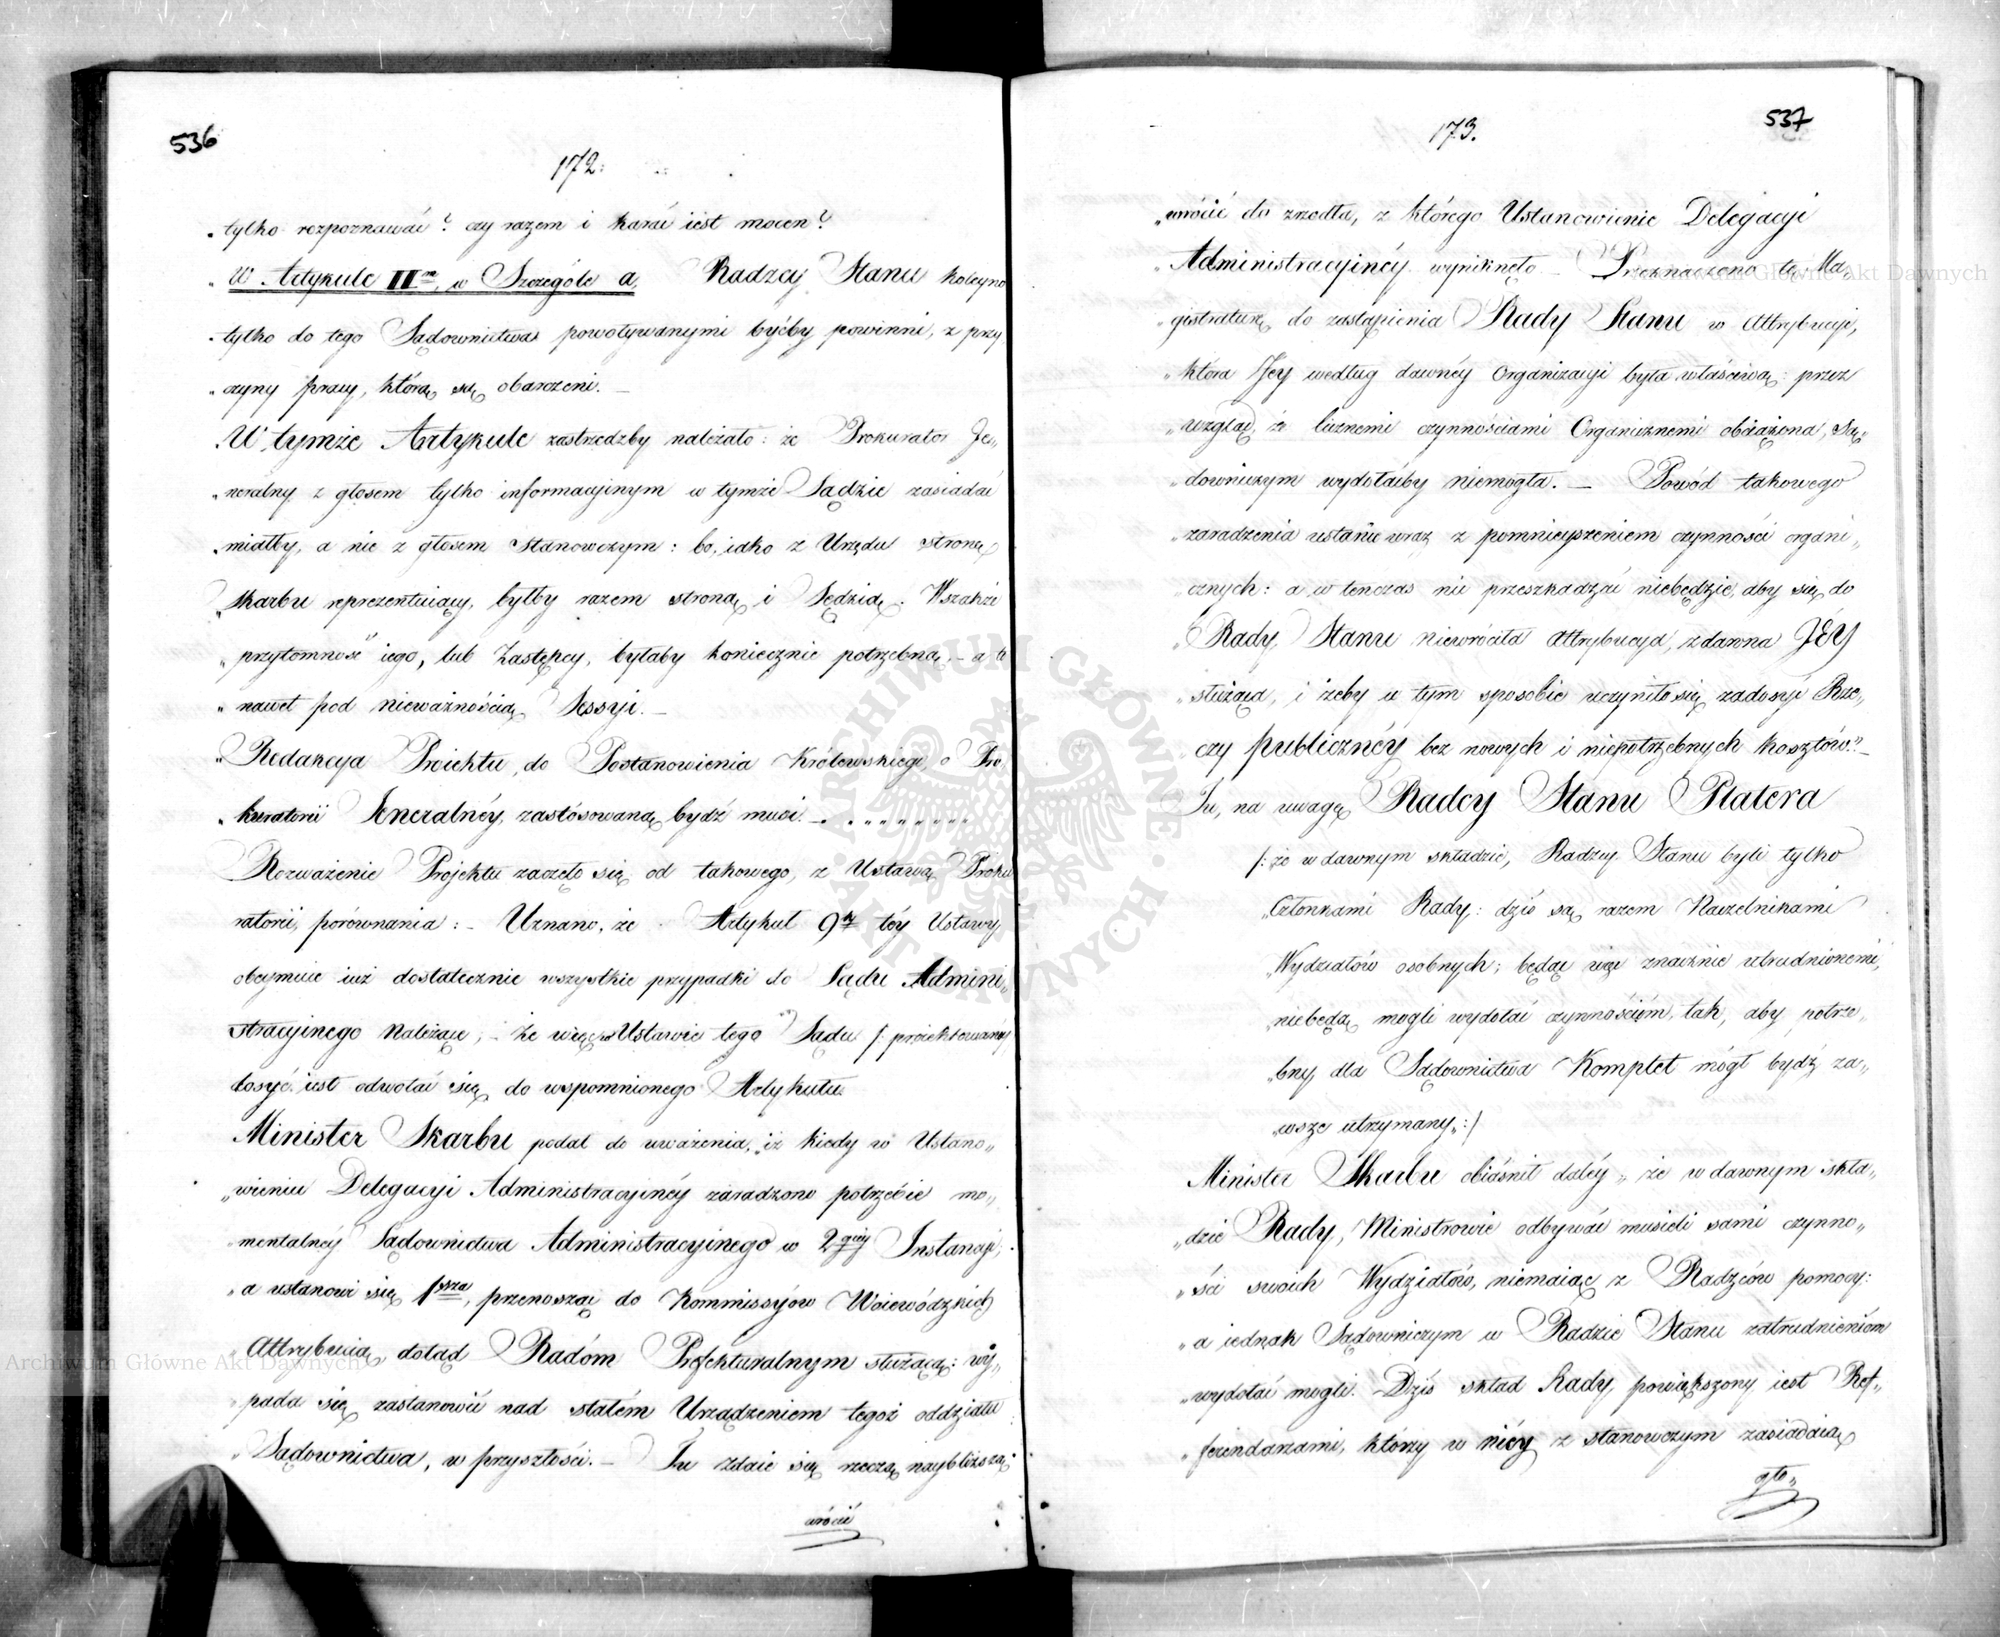 536
172.
„tylko rozpoznawać? czy razem i karać iest mocen?
„W Artykule II<sup>m</sup>, w Szczególe a, Radzcy Stanu koleyno
„tylko do tego Sądownictwa powoływanymi byćby powinni, z przy
„czyny pracy, którą są obarczeni. —
„W tymże Artykule zastrzedzby należało: że Prokurator Je„
„neralny z głosem tylko informacyinym w tymże Sądzie zasiadać
„miałby, a nie z głosem stanowczym: bo, iako z Urzędu stronę
„Skarbu reprezentuiący, byłby razem stroną i Sędzią. Wszakże
„przytomność iego, lub Zastępcy, byłaby koniecznie potrzebną, — a to
„nawet pod nieważnością Sessyi. —
„Redakcya Proiektu, do Postanowienia Królewskiego, o Pro„
„kuratorii Jeneralnéy, zastósowaną bydź musi. —
Rozważenie Projektu zaczęło się od takowego, z Ustawą Proku
ratorii, porównania: — Uznano, że Artykuł 9<sup>ty</sup> téy Ustawy,
obeymuie iuż dostatecznie wszystkie przypadki do Sądu Admini„
stracyinego Należące; — że więc w Ustawie tego Sądu /: proiektowanéy
dosyć iest odwołać się do wspomnionego Artykułu.
Minister Skarbu podał do uważenia, „iż kiedy w Ustano„
„wieniu Delegacyi Administracyinéy zaradzono potrzebie mo„
„mentalnéy Sądownictwa Administracyinego w 2<sup>giéy</sup> Instancyi,
„a ustanowi się 1<sup>sza</sup>, przenosząc do Kommissyów Woiewódzkich
„Attrybucią, dotąd Radóm Prefekturalnym służącą: wy„
„pada się zastanowić nad stałém Urządzeniem tegoż oddziału
„Sądownictwa, w przyszłości. — Tu zdaie się rzeczą naybliższą
wrócić
537
173.
„wrócić do zrzodła, z którego Ustanowienie Delegacyi
„Administracyinéy wyniknęło — Przeznaczono tę Ma„
„gistraturę do zastąpienia Rady Stanu w Attrybucyi,
„która Jey według dawnéy Organizacyi była właściwą: przez
„wzgląd, że licznemi czynnościami Organicznemi obciążona, Są„
„downiczym wydołaćby niemogła. — Powód takowego
„zaradzenia ustanie wraz z pomnieyszeniem czynności organi„
„cznych: a w tenczas nic przeszkadzać niebędzie, aby się do
„Rady Stanu niewróciła Attrybucya, zdawna JÉY
„służąca, i żeby w tym sposobie uczyniło się zadosyć Rze„
czy publicznéy bez nowych i niepotrzebnych kosztów." —
Tu, na uwagę Radcy Stanu Platera
/: że w dawnym składzie, Radzcy Stanu byli tylko
„Członkami Rady: dziś są razem Naczelnikami
„Wydziałów osobnych; będąc więc znacznie utrudnionemi,
„niebędą mogli wydołać czynnościóm, tak, aby potrze„
„bny dla Sądownictwa Komplet mógł bydź za„
„wsze utrzymany„:/
Minister Skarbu obiaśnił daléy „że w dawnym skła„
„dzie Rady, Ministrowie odbywać musieli sami czynno„
„ści swoich Wydziałów, niemaiąc z Radzców pomocy:
„a iednak Sądowniczym w Radzie Stanu zatrudnienióm
„wydołać mogli. Dziś skład Rady, powiększony iest Ref„
„ferendarzami, którzy w niéy z stanowczym zasiadaią
gło„
Archiwum Główne Akt Dawnych
Archiwum Główne Akt Dawnych
ARCHIWUM GŁÓWNE AKT DAWNYCH